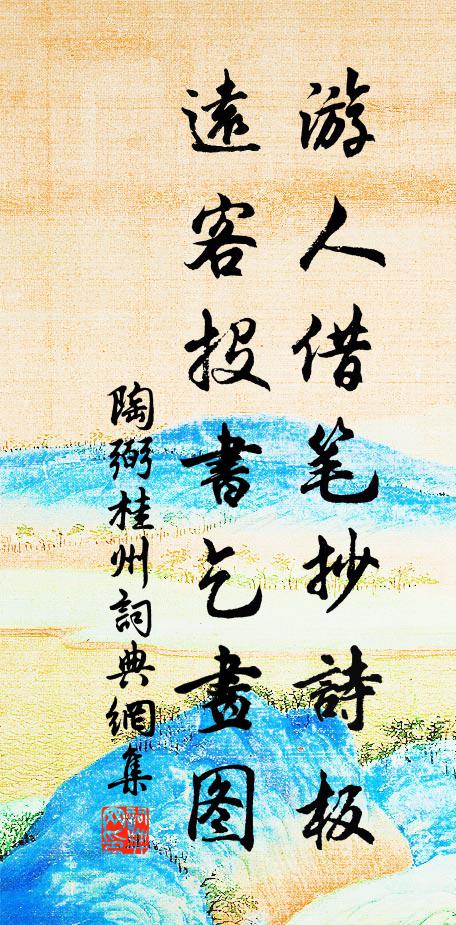 游人借笔抄詩板
遠客投書乞畫图
陶弼桂州詞典網集